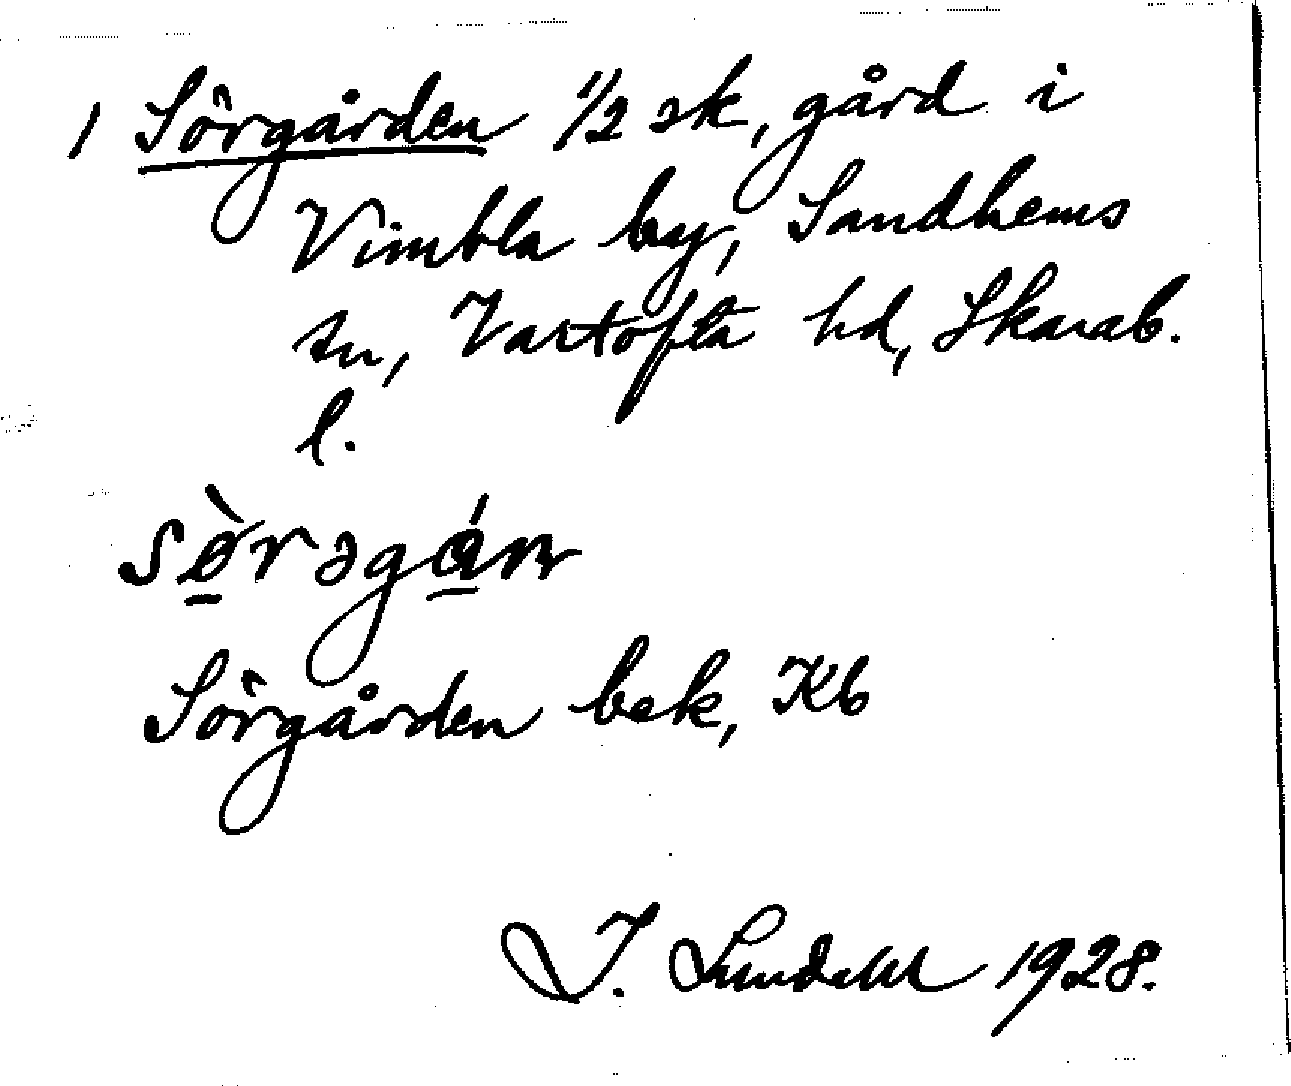 1 Sörgården 1/2 sk, gård i
Vimbla by, Sandhems
sn, Vartofta hd, Skarab.
l.
sø̀rəgán
Sörgården bek, Kb
I. Lundahl 1928.